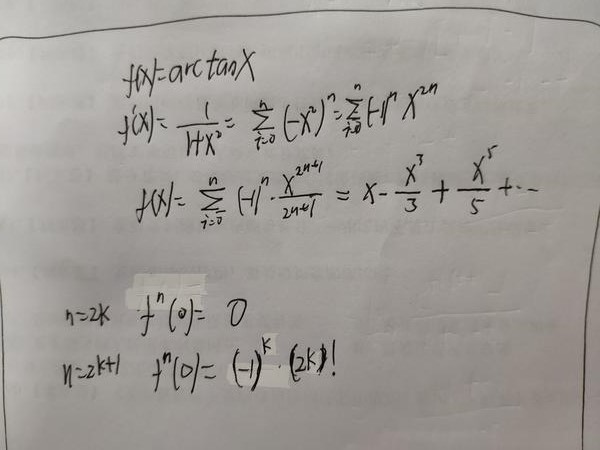 f(x)=arctanx
f'(x)= 1/(1+x²) = ∑_{i=0}^{n} (-x²)^n = ∑_{i=0}^{n} (-1)^n x^{2n}
f(x)= ∑_{i=0}^{n} (-1)^n · x^{2n+1}/(2n+1) = x - x³/3 + x⁵/5 + ...
n=2k f^n(0)= 0
n=2k+1 f^n(0)= (-1)^k · (2k)!